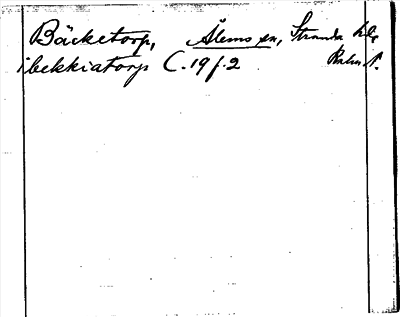 Bäcketorp, Ålems sn, Stranda hd,
ibekkiatorp C. 19 f. 2 Kalm. l.